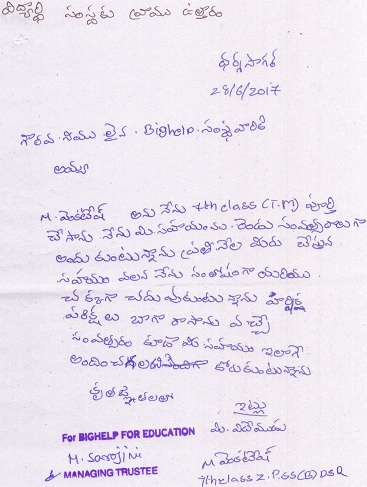 విద్యార్థి సంస్థకు వ్రాయు ఉత్తరం
ధర్మసాగర్
28/6/2017
గౌరవనీయులైన Bighelp సంస్థవారికి
అయ్యా
M. వెంకటేష్ అను నేను 7th class (T.M) పూర్తి
చేసాను నేను మీ సహాయంను రెండు సంవత్సరాలుగా
అందుకుంటున్నాను ప్రతి నెల మీరు చేస్తున్న
సహాయం వలన నేను సంతోషంగా మరియు
చక్కగా చదువుకుంటున్నాను వార్షిక
పరిక్షలు బాగా రాసాను వచ్చే
సంవత్సరం కూడా మీ సహాయం ఇలాగే
కోరుకుంటున్నాను
కృతజ్ఞతలతో
ఇట్లు
మీ విదేయుడు
For BIGHELP FOR EDUCATION
M. Sarojini
MANAGING TRUSTEE
M వెంకటేష్
7th class Z.P.SS(B) DSR